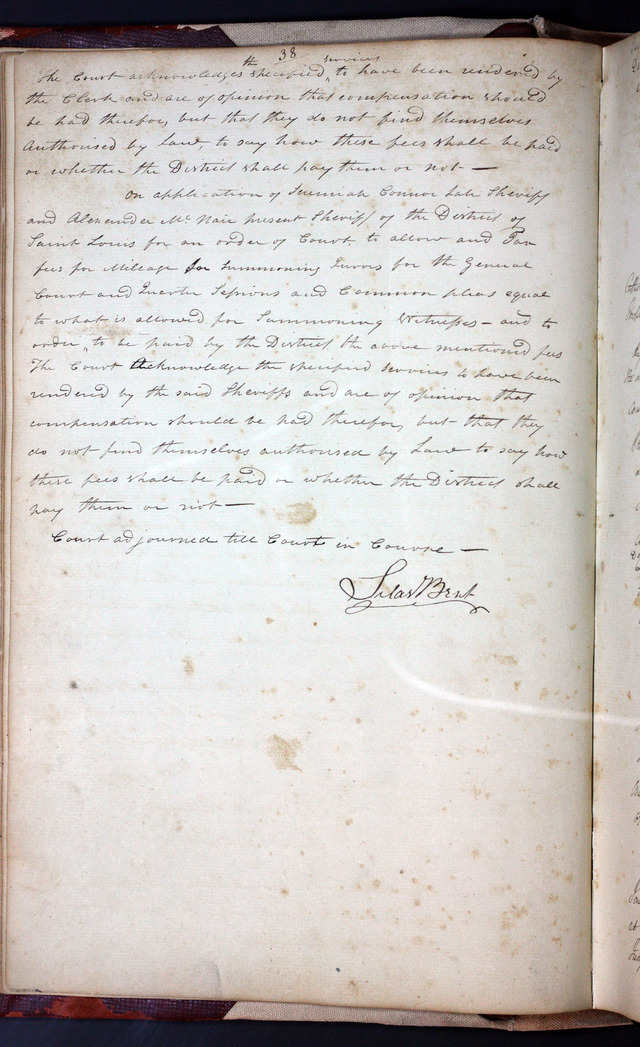 38
the services
The Court acknowledges specified ‸ to have been rendered by
the Clerk and are of opinion that compensation should
be had therefor, but that they do not find themselves
Authorised by Law, to say how these fees shall be paid
or whether the District shall pay them or not —
On application of Jeremiah Connor late Sheriff
and Alexander Mc Nair present Sheriff of the District of
Saint Louis for an order of Court to allow and Tax
fees for Mileage for Summoning Jurors for the General
Court and Quarter Sessions and Common pleas equal
to what is allowed for Summoning Witnesses — and to
order ‸ to be paid by the District the above mentioned fees
The Court Acknowledge the specified services to have been
rendered by the said Sheriffs and are of opinion that
compensation should be had therefor, but that they
do not find themselves authorised by Law to say how
these fees shall be paid or whether the District shall
pay them or not —
Court adjourned till Court in Course —
Silas Bent